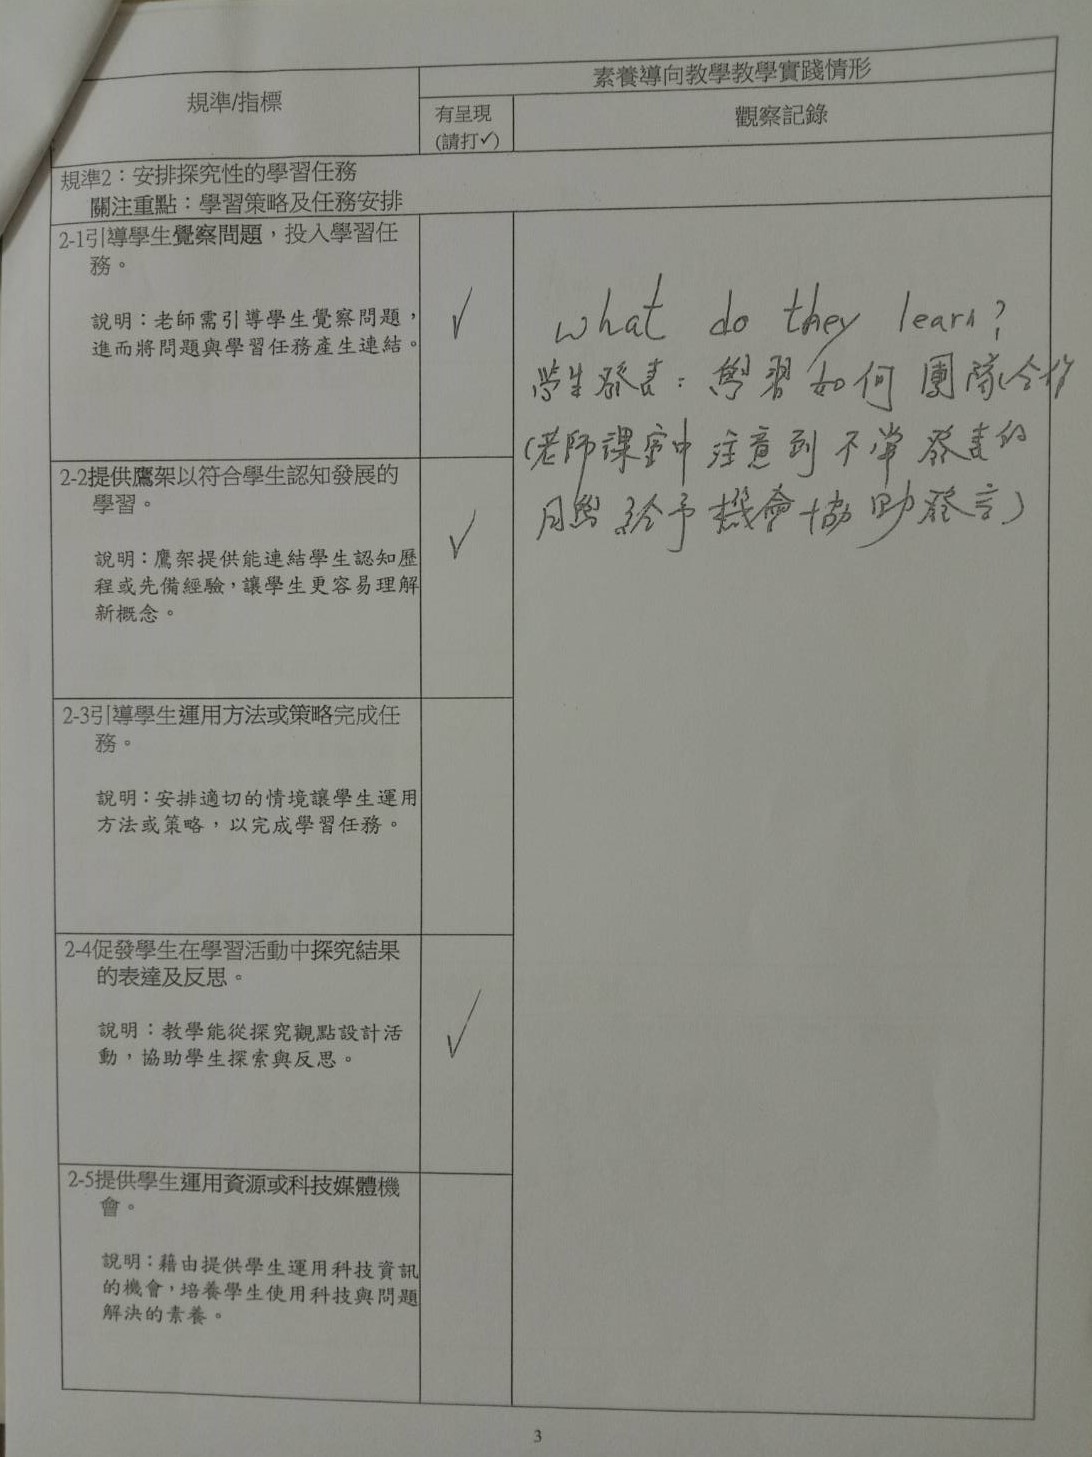 素養導向教學教學實踐情形
規準/指標
有呈現
(請打✓)
觀察記錄
規準2：安排探究性的學習任務
關注重點：學習策略及任務安排
2-1引導學生覺察問題，投入學習任
務。
說明：老師需引導學生覺察問題，
進而將問題與學習任務產生連結。
✓
what do they learn?
學生發表：學習如何團隊合作
(老師課堂中注意到不常發表的
同學給予機會協助發言)
2-2提供鷹架以符合學生認知發展的
學習。
說明：鷹架提供能連結學生認知歷
程或先備經驗，讓學生更容易理解
新概念。
✓
2-3引導學生運用方法或策略完成任
務。
說明：安排適切的情境讓學生運用
方法或策略，以完成學習任務。
2-4促發學生在學習活動中探究結果
的表達及反思。
說明：教學能從探究觀點設計活
動，協助學生探索與反思。
✓
2-5提供學生運用資源或科技媒體機
會。
說明：藉由提供學生運用科技資訊
的機會，培養學生使用科技與問題
解決的素養。
3